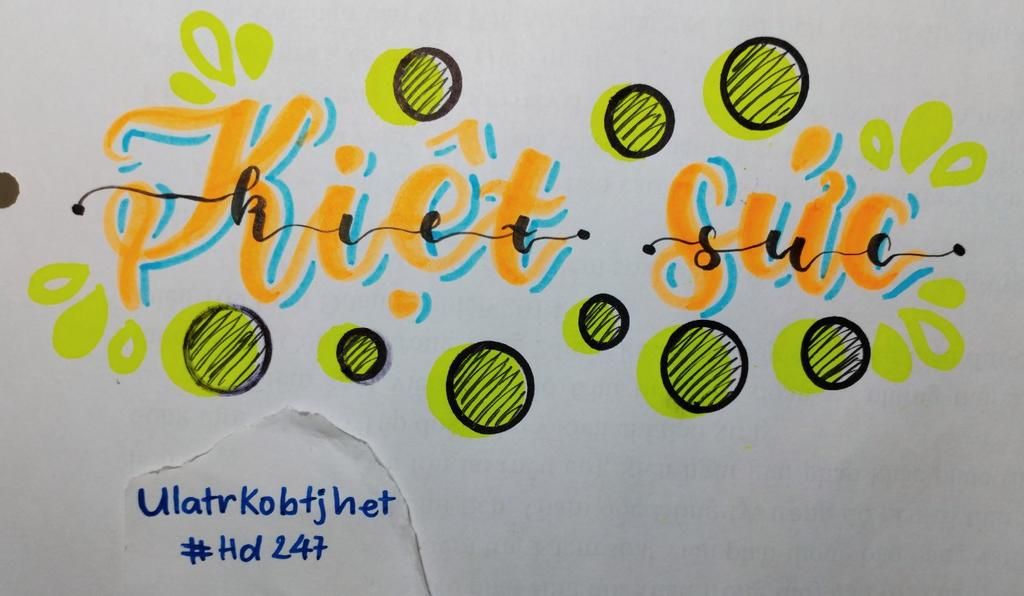 Kiệt sức
kiet suc
UlatrKobtjhet
#Hd 247